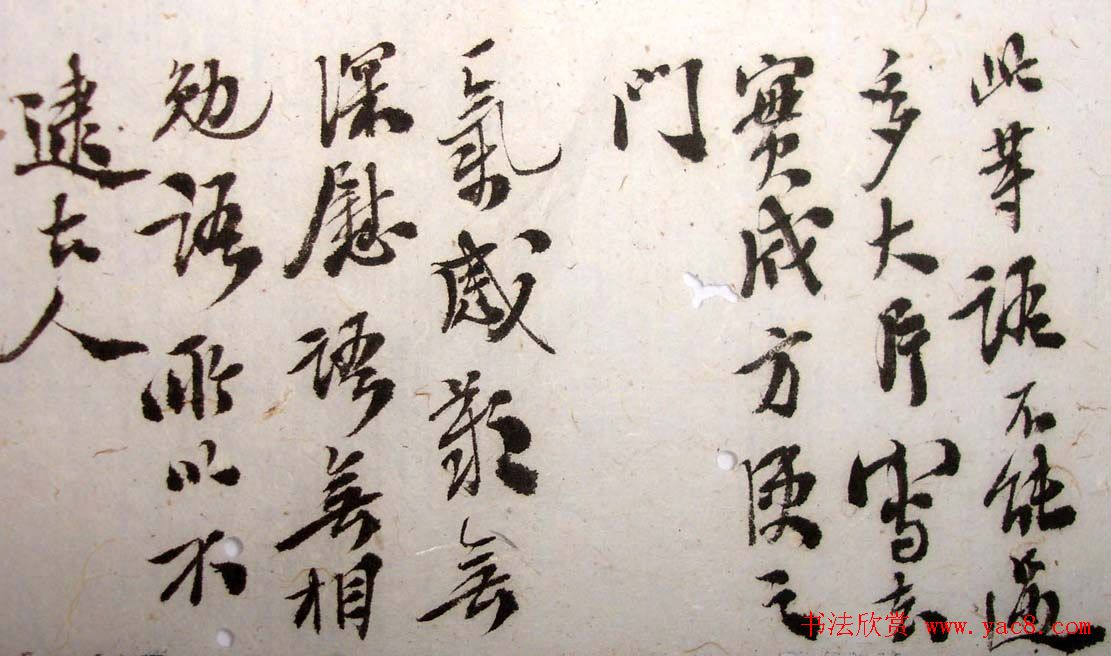 此等語不能
多大片寫去
實成方便之
門
氣感歎無
深慰語無相
勉語所以不
逮古人
书法欣赏 www.yac8.com